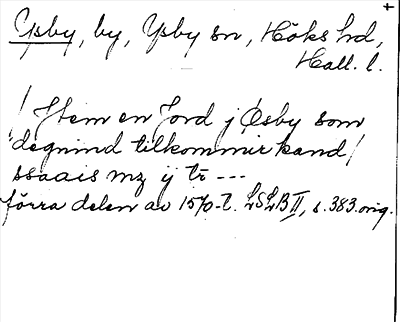 Ysby, by, Ysby sn, Höks hd,
Hall. l.
/Item en Jord j Øsby som
degnind tilkommir kand/
ssaais mz ij tr ---
förra delen av 1570-t. LSLB II, s. 383. orig.